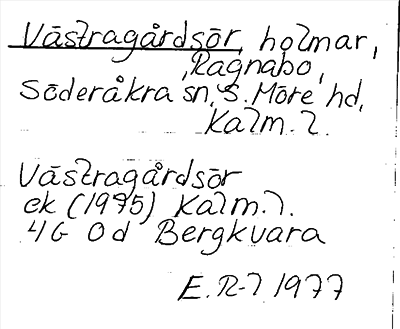 Västragårdsör, holmar,
Ragnabo,
Söderåkra sn, S. Möre hd,
Kalm. l.
Västragårdsör
ek (1975) Kalm. l.
4G 0d Bergkvara
E. R-l 1977